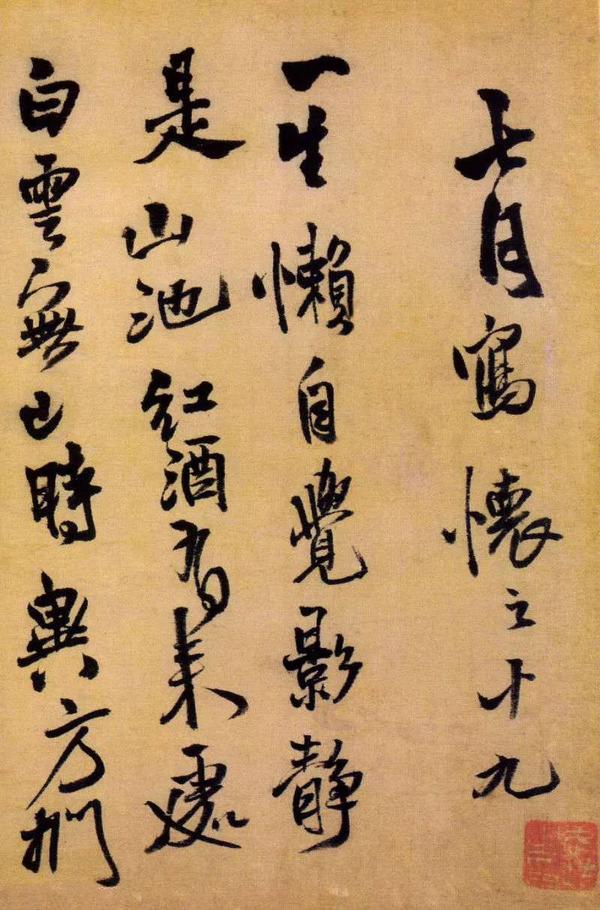 七月寫懷之十九
一生懶自覺影靜
是山池紅酒有来處
白雲無已時興方